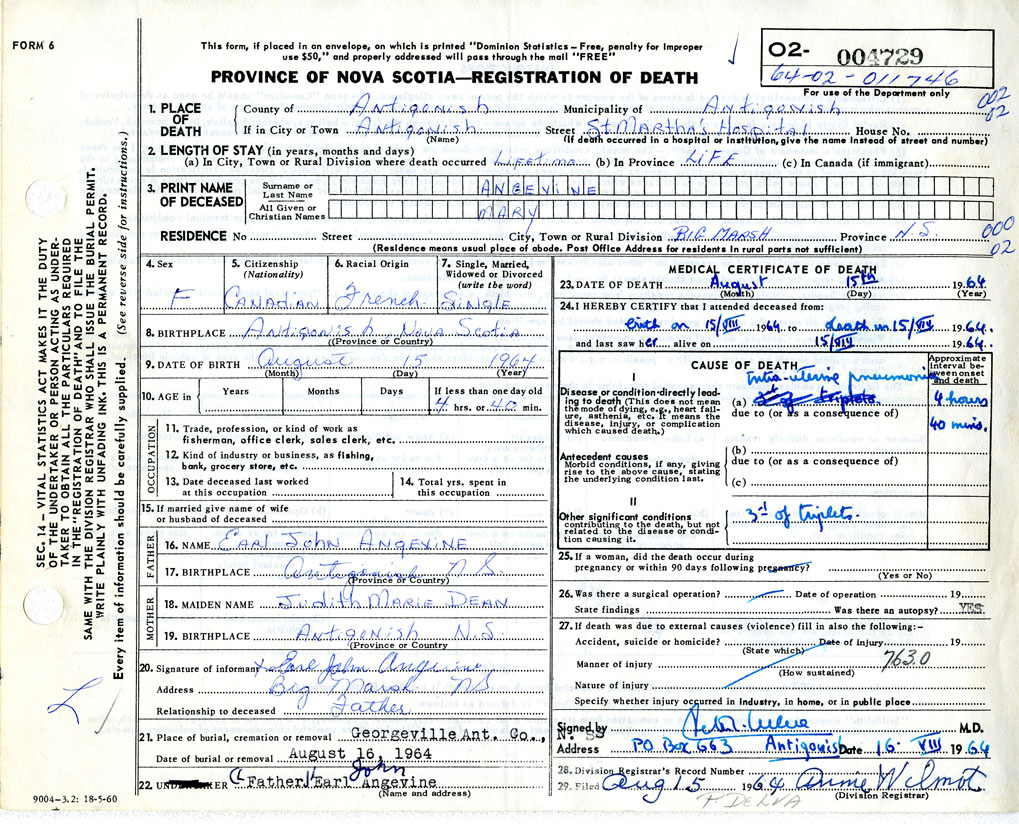 FORM 6
This form, if placed in an envelope, on which is printed "Dominion Statistics – Free, penalty for improper
use $50," and properly addressed will pass through the mail "FREE"
PROVINCE OF NOVA SCOTIA—REGISTRATION OF DEATH
02- 004729
64-02-011746
For use of the Department only
002
02
1. PLACE OF DEATH
County of Antigonish Municipality of Antigonish
If in City or Town Antigonish Street St. Martha's Hospital House No.
(Name) (If death occurred in a hospital or institution, give the name instead of street and number)
2. LENGTH OF STAY (in years, months and days)
(a) In City, Town or Rural Division where death occurred Lifetime (b) In Province LIFE (c) In Canada (if immigrant)
3. PRINT NAME OF DECEASED
Surname or Last Name ANGEVINE
All Given or Christian Names MARY
RESIDENCE No Street City, Town or Rural Division BIG MARSH Province N.S.
000
02
(Residence means usual place of abode. Post Office Address for residents in rural parts not sufficient)
4. Sex F
5. Citizenship (Nationality) CANADIAN
6. Racial Origin French
7. Single, Married, Widowed or Divorced (write the word) SINGLE
8. BIRTHPLACE Antigonish Nova Scotia
(Province or Country)
9. DATE OF BIRTH August 15 1964
(Month) (Day) (Year)
10. AGE in Years Months Days If less than one day old
4 hrs. or 40 min.
OCCUPATION
11. Trade, profession, or kind of work as
fisherman, office clerk, sales clerk, etc.
12. Kind of industry or business, as fishing,
bank, grocery store, etc.
13. Date deceased last worked
at this occupation
14. Total yrs. spent in
this occupation
15. If married give name of wife
or husband of deceased
FATHER
16. NAME EARL JOHN ANGEVINE
17. BIRTHPLACE Antigonish N.S.
(Province or Country)
MOTHER
18. MAIDEN NAME JUDITH MARIE DEAN
19. BIRTHPLACE ANTIGONISH N.S.
(Province or Country
20. Signature of informant x Earl John Angevine
Address Big Marsh NS
Relationship to deceased Father
21. Place of burial, cremation or removal Georgeville Ant. Co.,
Date of burial or removal August 16, 1964
22. (Father) Earl John Angevine
(Name and address)
9004-3.2: 18-5-60
MEDICAL CERTIFICATE OF DEATH
23. DATE OF DEATH August 15th 1964
(Month) (Day) (Year)
24. I HEREBY CERTIFY that I attended deceased from:
birth on 15/VIII 1964 to death on 15/VIII 1964.
and last saw her alive on 15/VIII 1964.
CAUSE OF DEATH
Approximate interval between onset and death
I
Disease or condition directly leading to death (This does not mean the mode of dying, e.g., heart failure, asthenia, etc. It means the disease, injury, or complication which caused death.)
Intra-uterine pneumonia
(a)
4 hours
40 mins.
due to (or as a consequence of)
Antecedent causes
Morbid conditions, if any, giving rise to the above cause, stating the underlying condition last.
(b)
due to (or as a consequence of)
(c)
II
Other significant conditions
contributing to the death, but not related to the disease or condition causing it.
3rd of triplets.
25. If a woman, did the death occur during
pregnancy or within 90 days following pregnancy?
(Yes or No)
26. Was there a surgical operation? Date of operation 19
State findings Was there an autopsy? YES
27. If death was due to external causes (violence) fill in also the following:–
Accident, suicide or homicide? Date of injury 19
(State which)
Manner of injury 763.0
(How sustained)
Nature of injury
Specify whether injury occurred in industry, in home, or in public place
Signed by M.D.
N. S.
Address PO Box 663 Antigonish Date 16. VIII 1964
28. Division Registrar's Record Number
29. Filed Aug 15 1964 Anne Wilmot
(Division Registrar)
F DELVA
SEC. 14 – VITAL STATISTICS ACT MAKES IT THE DUTY
OF THE UNDERTAKER OR PERSON ACTING AS UNDER-
TAKER TO OBTAIN ALL THE PARTICULARS REQUIRED
IN THE "REGISTRATION OF DEATH" AND TO FILE THE
SAME WITH THE DIVISION REGISTRAR WHO SHALL ISSUE THE BURIAL PERMIT.
WRITE PLAINLY WITH UNFADING INK. THIS IS A PERMANENT RECORD.
Every item of information should be carefully supplied. (See reverse side for instructions.)